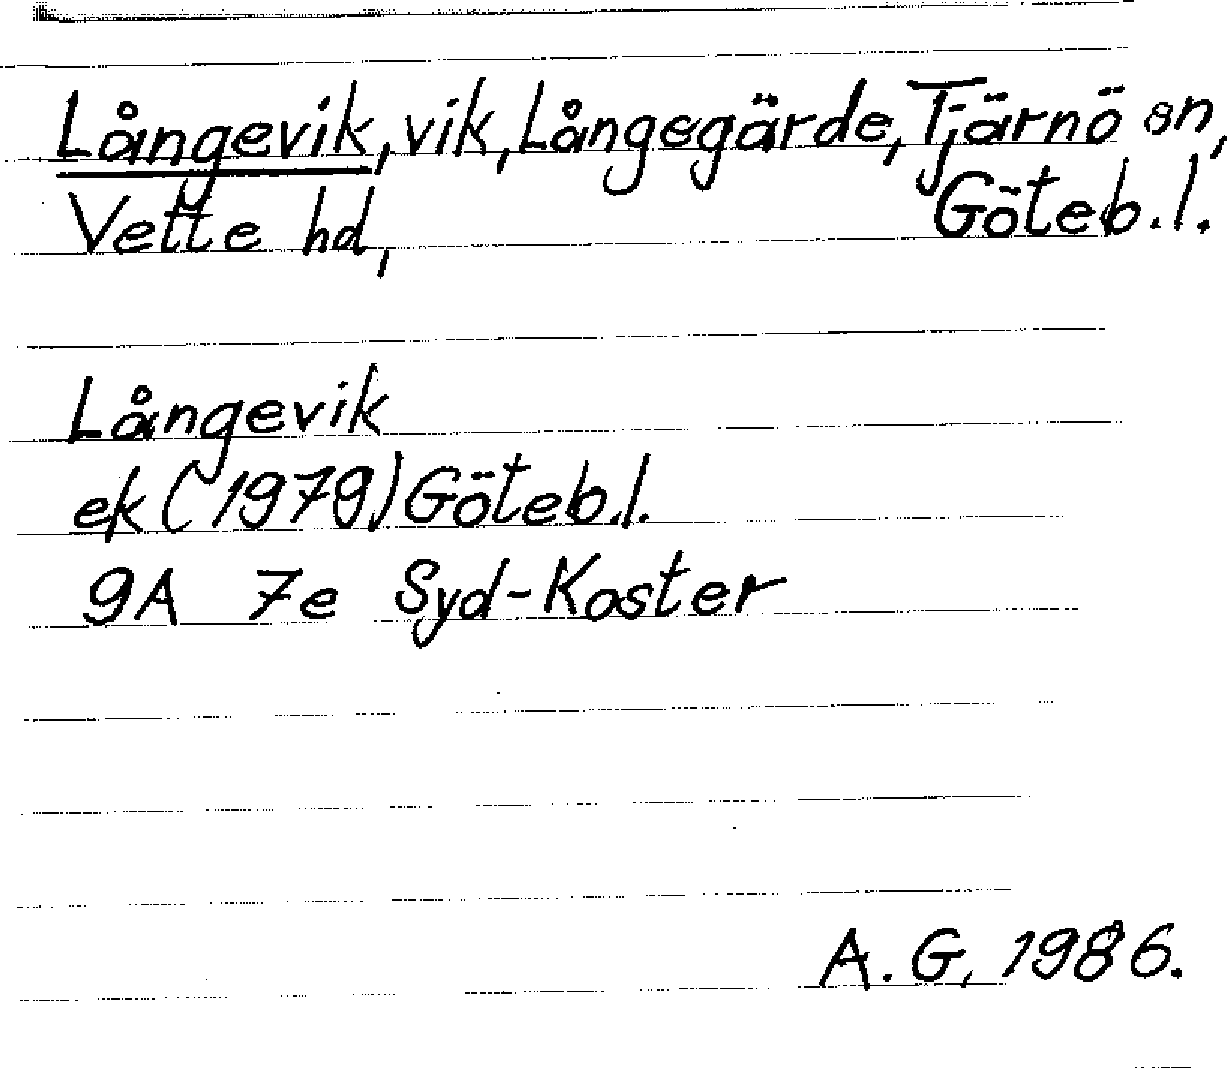 Långevik, vik, Långegärde, Tjärnö sn,
Vette hd, Göteb. l.
Långevik
ek (1979) Göteb. l.
9A 7e Syd-Koster
A. G, 1986.